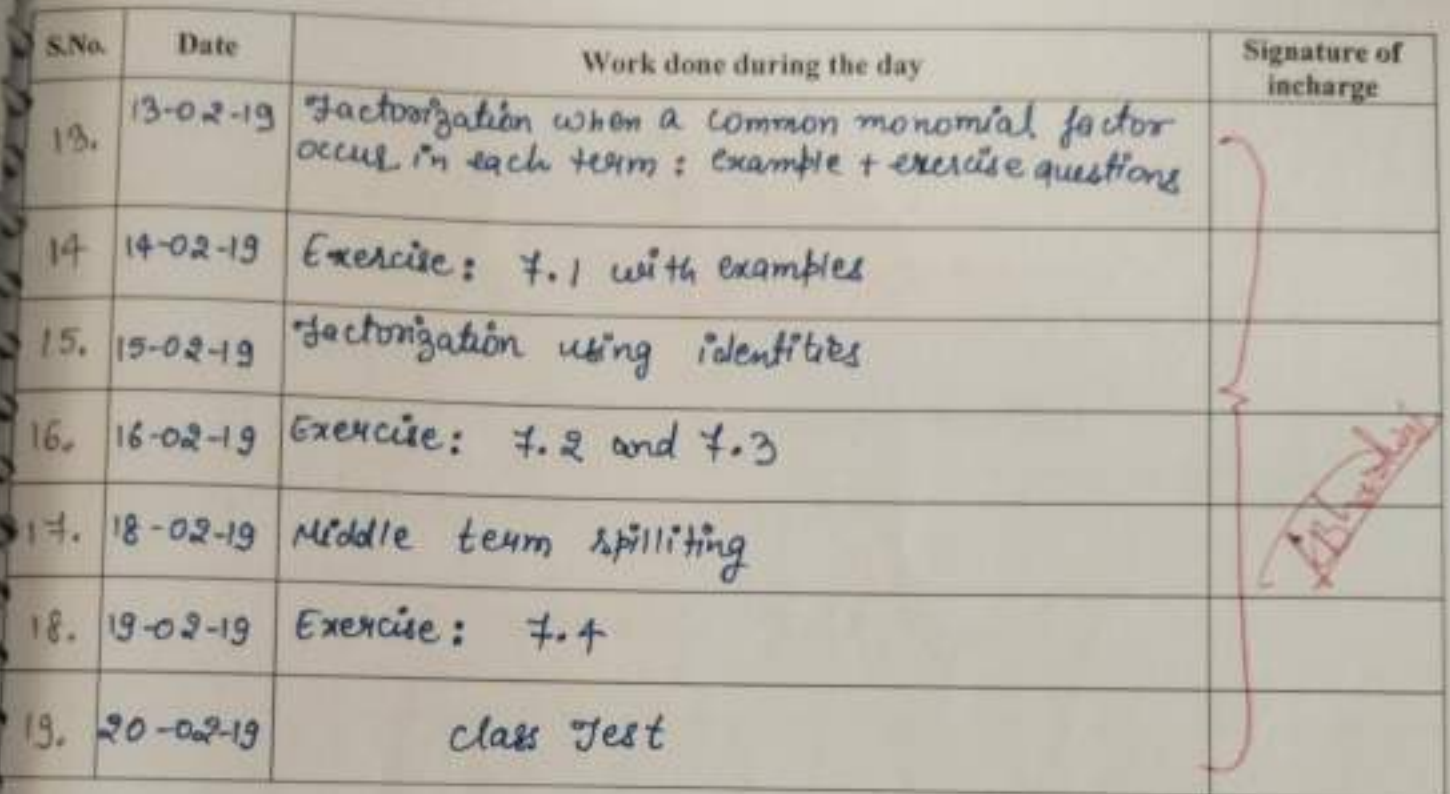 S.No. Date Work done during the day Signature of
incharge
13. 13-02-19 Factorization when a common monomial factor
occur in each term : example + exercise questions
14 14-02-19 Exercise : 7.1 with examples
15. 15-02-19 Factorization using identities
16. 16-02-19 Exercise : 7.2 and 7.3
17. 18-02-19 Middle term spilliting
18. 19-02-19 Exercise : 7.4
19. 20-02-19 class Test